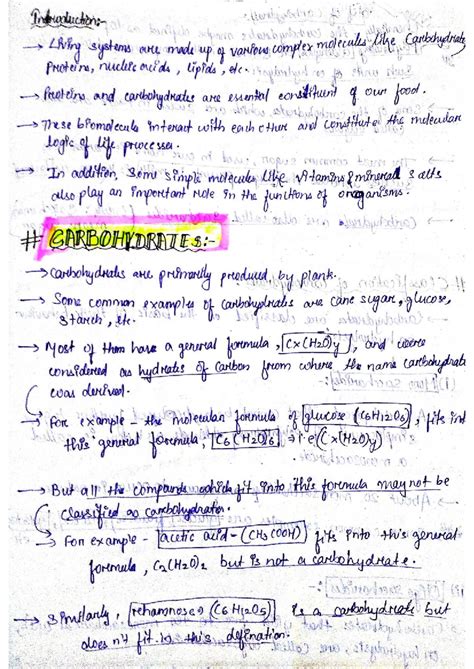 Introduction:-
→ Living systems are made up of various complex molecules like Carbohydrates,
Proteins, nucleic acids, lipids, etc.
→ Proteins and carbohydrates are essential constituent of our food.
→ These biomolecules interact with each other and constitute the molecular
logic of life processes.
→ In addition, some simple molecules like vitamins & mineral salts
also play an important role in the functions of organisms.
# CARBOHYDRATES:-
→ Carbohydrates are primarily produced by plant.
→ Some common examples of carbohydrates are cane sugar, glucose,
starch, etc.
→ Most of them have a general formula, Cx(H2O)y, and were
considered as hydrates of carbon from where the name carbohydrate
was derived.
→ For example - the molecular formula of glucose (C6H12O6), fits into
this general formula, C6(H2O)6 i.e (Cx(H2O)y)
→ But all the compounds which fit into this formula may not be
classified as carbohydrates.
→ For example - acetic acid - (CH3COOH) fits into this general
formula, C2(H2O)2 but is not a carbohydrate.
→ Similarly, rehamnose, (C6H12O5) is a carbohydrate but
does n't fit in this defination.